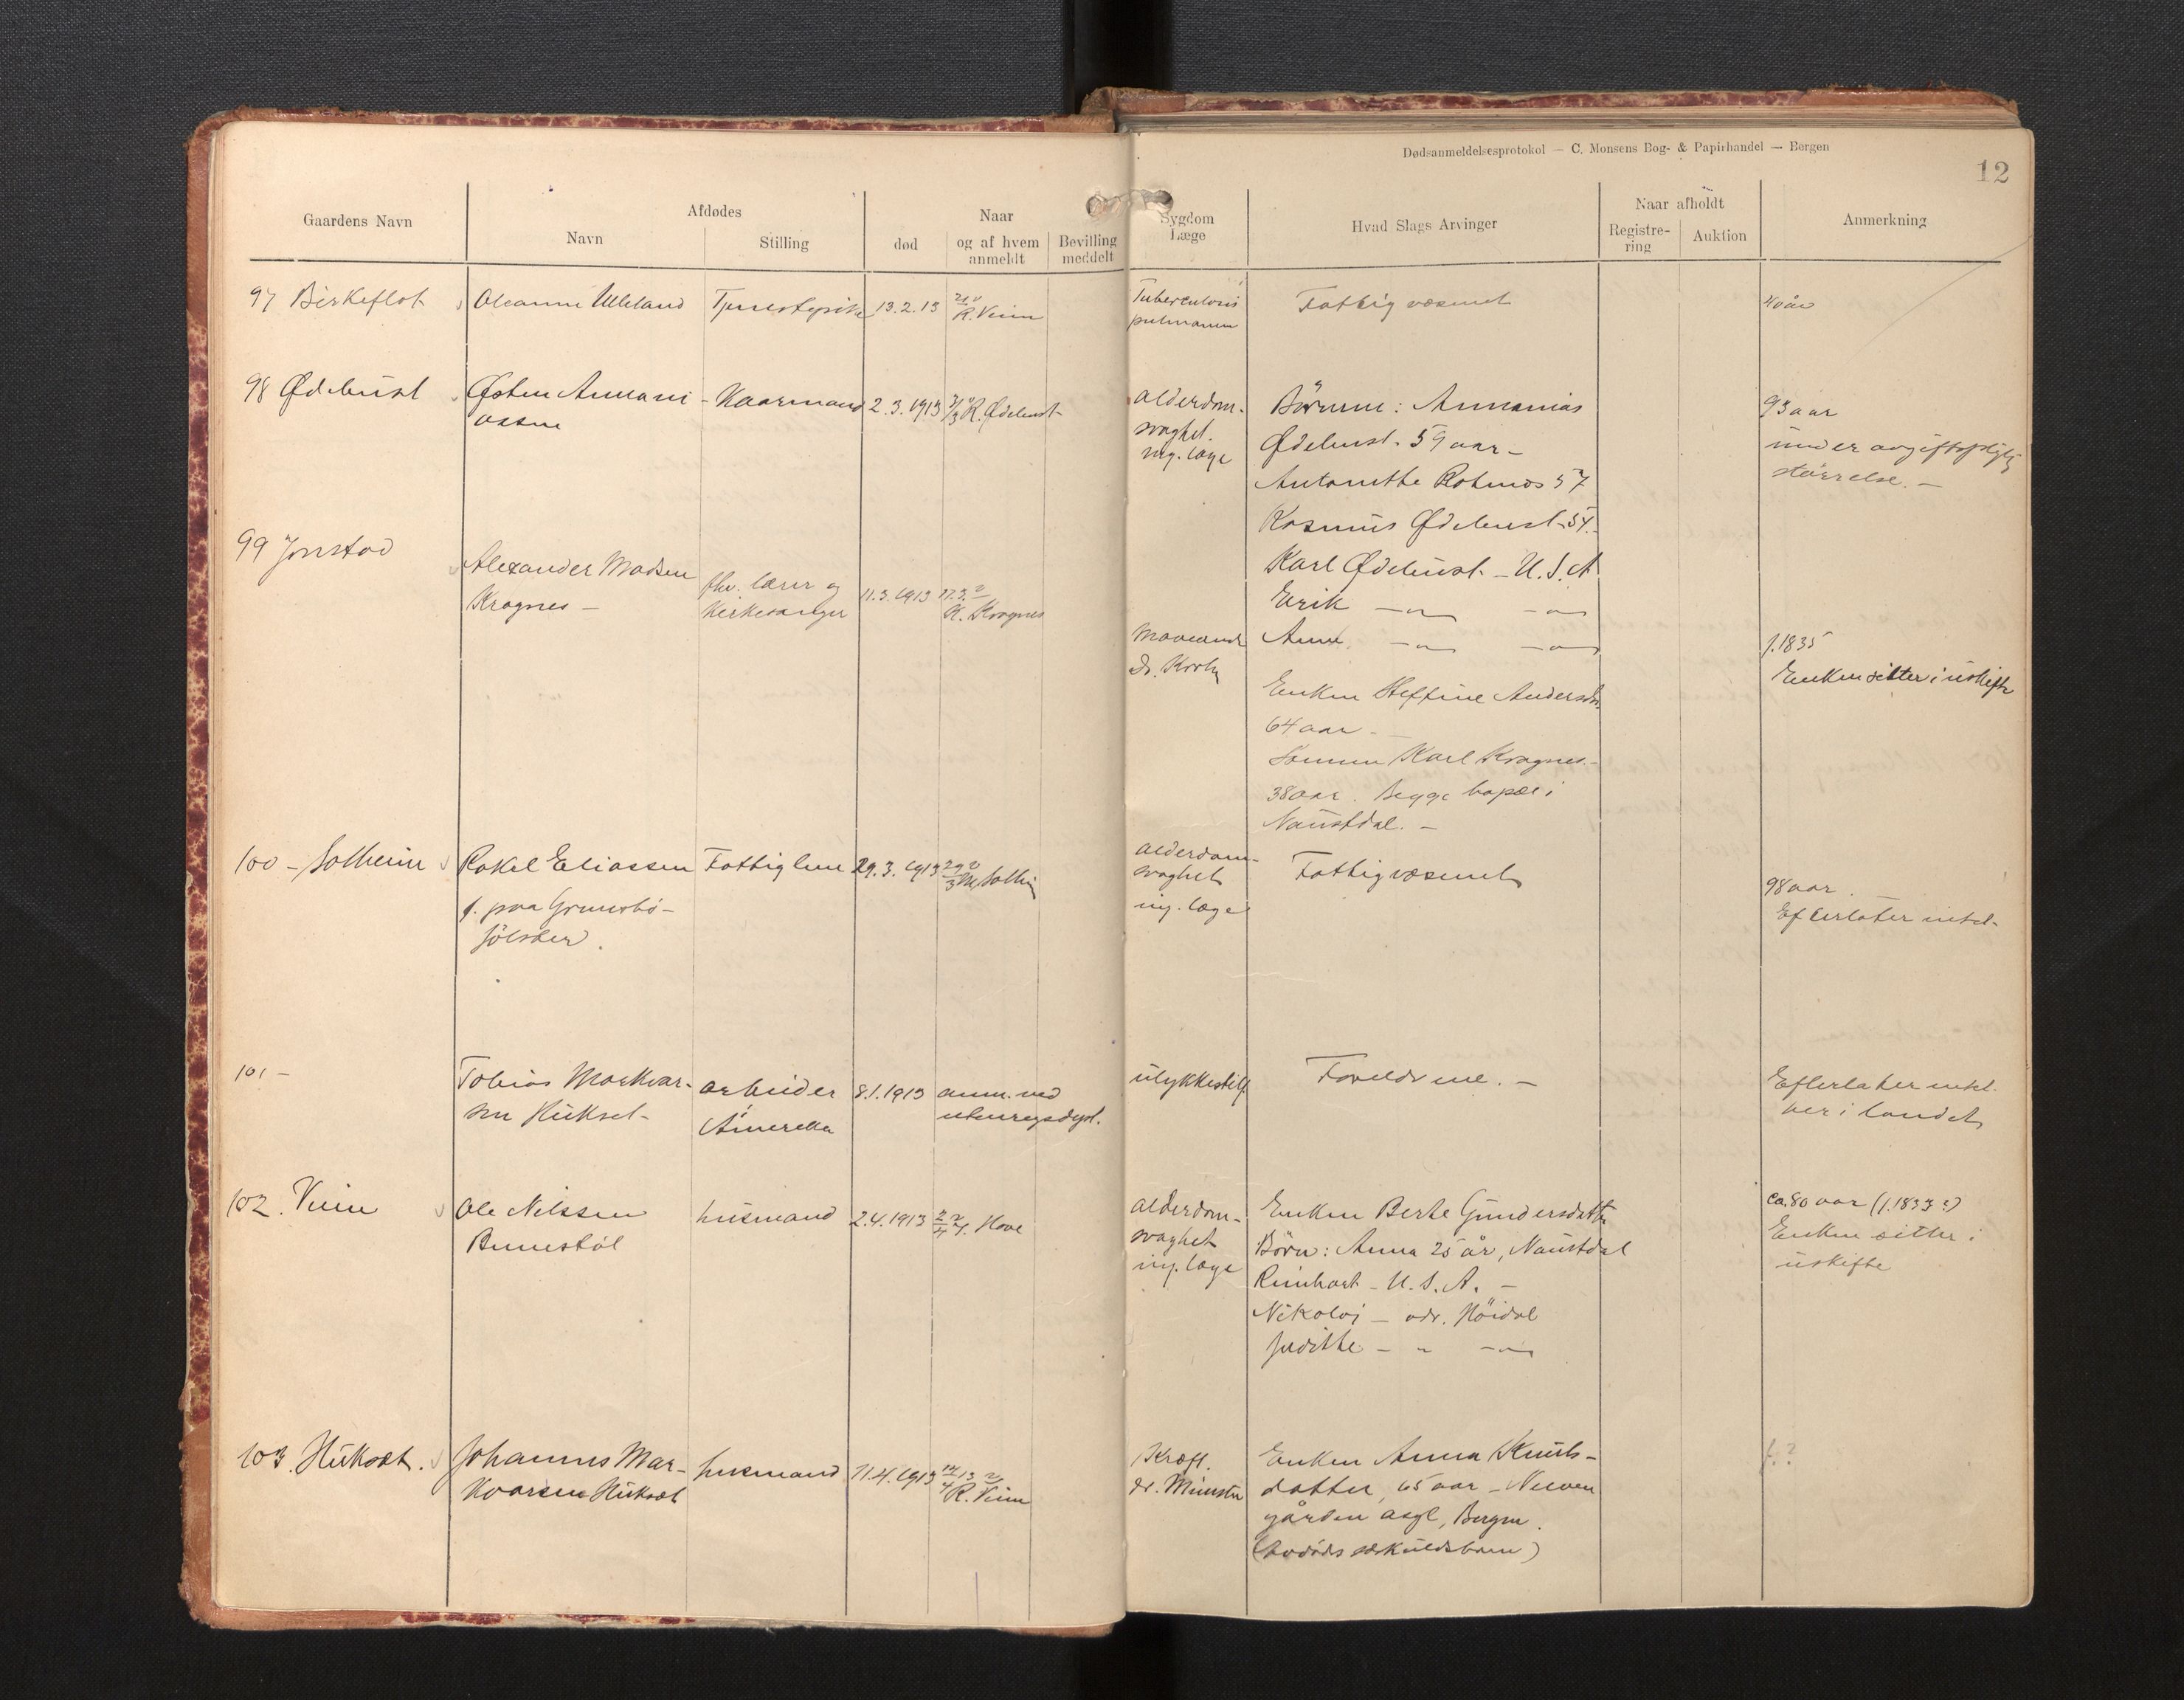 Dødsanmeldelsesprotokol — C. Monsens Bog- & Papirhandel — Bergen
12
Gaardens Navn
Afdødes
Navn
Stilling
Naar
død
og af hvem anmeldt
Bevilling meddelt
Sygdom
Læge
Hvad Slags Arvinger
Naar afholdt
Registrering
Auktion
Anmerkning
97 Birkeflot
Oleanne Ulleland
13.2.13
R. Veim
Tuberculosis
pulmonum
Fattigvæsenet
40 år
98 Ødehust
Østen Annani-
assen
Kaarmand
2.3.1913
3/3 R. Ødehust
Alderdom-
svaghet.
ing. læge
Børnene: Annanias
Ødehust. 59 aar –
Antonette Rotnes 57
Rasmus Ødehust 54.
Karl Ødehust – U.S.A
Erik –"– –"–
Anne –"– –"–
93 aar
under avgiftspligtig
størrelse. –
99 Jonstad
Alexander Madsen
Kragnes –
fhv. lærer og
Kirkesanger
11.3.1913
17.3.
K. Kragnes
Dr. Krohn
Enken Steffine Andersdtr.
64 aar –
Sønnen Karl Kragnes –
38 aar. Begge bopæl i
Naustdal. –
f. 1835
Enken sitter i uskifte
100 – Solheim
Rakel Eliassen
f. paa Grunebø –
Jølster.
Fattiglem
29.3.1913
29/3
Alderdom-
svaghet
ing. læge
Fattigvæsenet
98 aar.
Efterlater intet.
101 –
Tobias Markvar-
sen Hukset –
arbeider
Amerika
8.1.1913
anm. ved
utenrigsdept.
ulykkestilf.
Forældrene. –
Efterlater intet
her i landet
102. Veim
Ole Nilssen
Bunestøl
husmand
2.4.1913
2/4
Hove
Alderdom-
svaghet
ing. læge
Enken Berte Gundersdatter
Børn: Anna 25 år, Naustdal
Reinhart – U.S.A. –
Nikolai – adr. Høidal
Judithe – " –"–
ca. 80 aar (f. 1833?)
Enken sitter i
uskifte
103. Huksæt.
Johannes Mar-
kvarsen Huksæt
husmand
11.4.1913
R. Veim
Kræft.
dr. Münster
Enken Anna Knuts-
datter, 65 aar –
gården asyl, Bergen.
(Avdøds særkuldsbarn)
f. ?